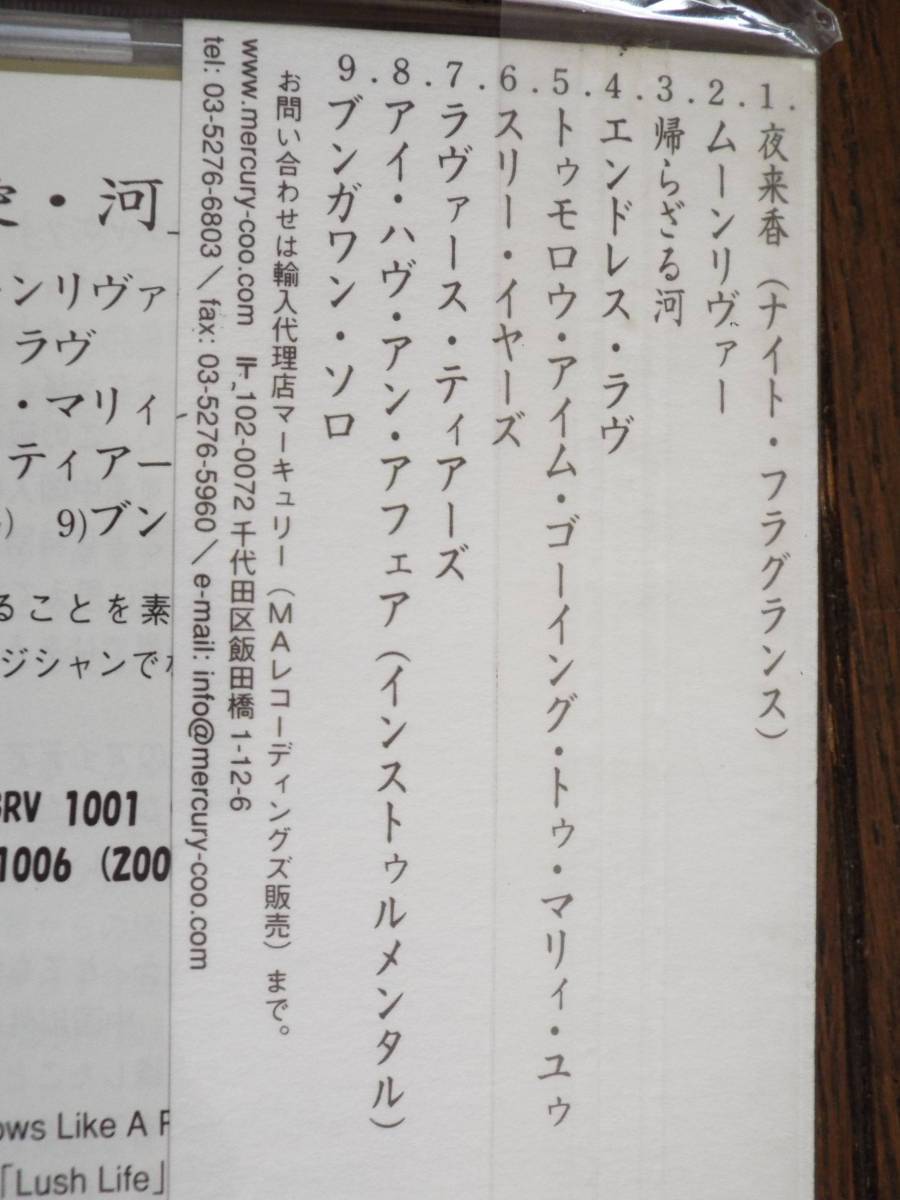 1.夜来香(ナイト・フラグランス)
2.ムーンリヴァー
3.帰らざる河
4.エンドレス・ラヴ
5.トゥモロウ・アイム・ゴーイング・トゥ・マリィ・ユゥ
6.スリー・イヤーズ
7.ラヴァース・ティアーズ
8.アイ・ハヴ・アン・アフェア(インストゥルメンタル)
9.ブンガワン・ソロ
お問い合わせは輸入代理店マーキュリー(MAレコーディングズ販売)まで。
www.mercury-coo.com 〒,102-0072 千代田区飯田橋 1-12-6
tel: 03-5276-6803 / fax: 03-5276-5960 / e-mail: info@mercury-coo.com
・河
ンリヴァ
ラヴ
・マリィ
ティアー
) 9)ブン
ることを素
ジシャンで
RV 1001
1006 (ZOO
ows Like A
「Lush Life」